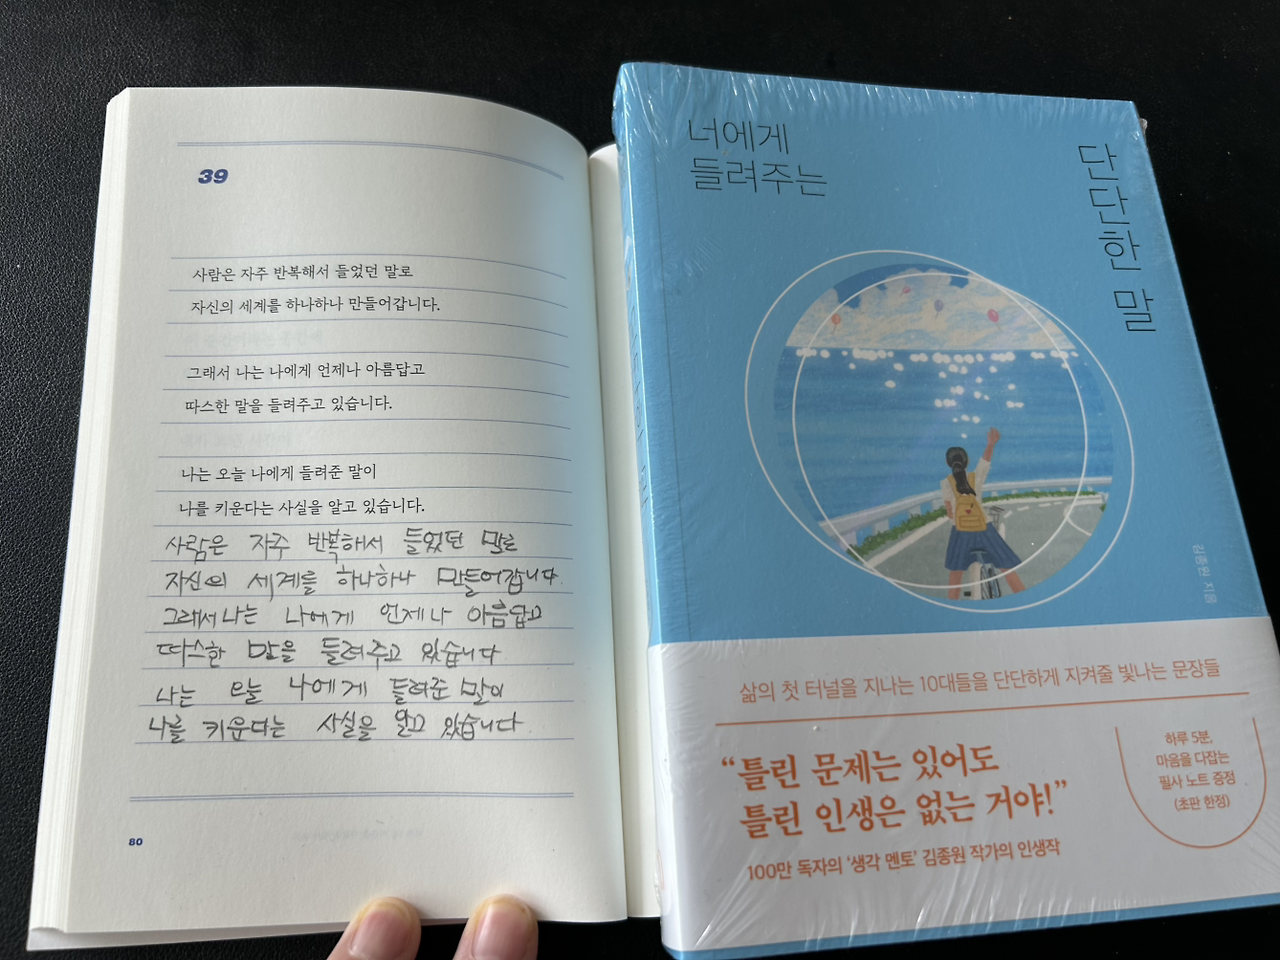 39
사람은 자주 반복해서 들었던 말로
자신의 세계를 하나하나 만들어갑니다.
그래서 나는 나에게 언제나 아름답고
따스한 말을 들려주고 있습니다.
나는 오늘 나에게 들려준 말이
나를 키운다는 사실을 알고 있습니다.
사람은 자주 반복해서 들었던 말로
자신의 세계를 하나하나 만들어갑니다.
그래서 나는 나에게 언제나 아름답고
따스한 말을 들려주고 있습니다
나는 오늘 나에게 들려준 말이
나를 키운다는 사실을 알고 있습니다.
80
너에게
들려주는
단단한 말
김종원 지음
삶의 첫 터널을 지나는 10대들을 단단하게 지켜줄 빛나는 문장들
“틀린 문제는 있어도
틀린 인생은 없는 거야!”
100만 독자의 ‘생각 멘토’ 김종원 작가의 인생작
하루 5분,
마음을 다잡는
필사 노트 증정
(초판 한정)